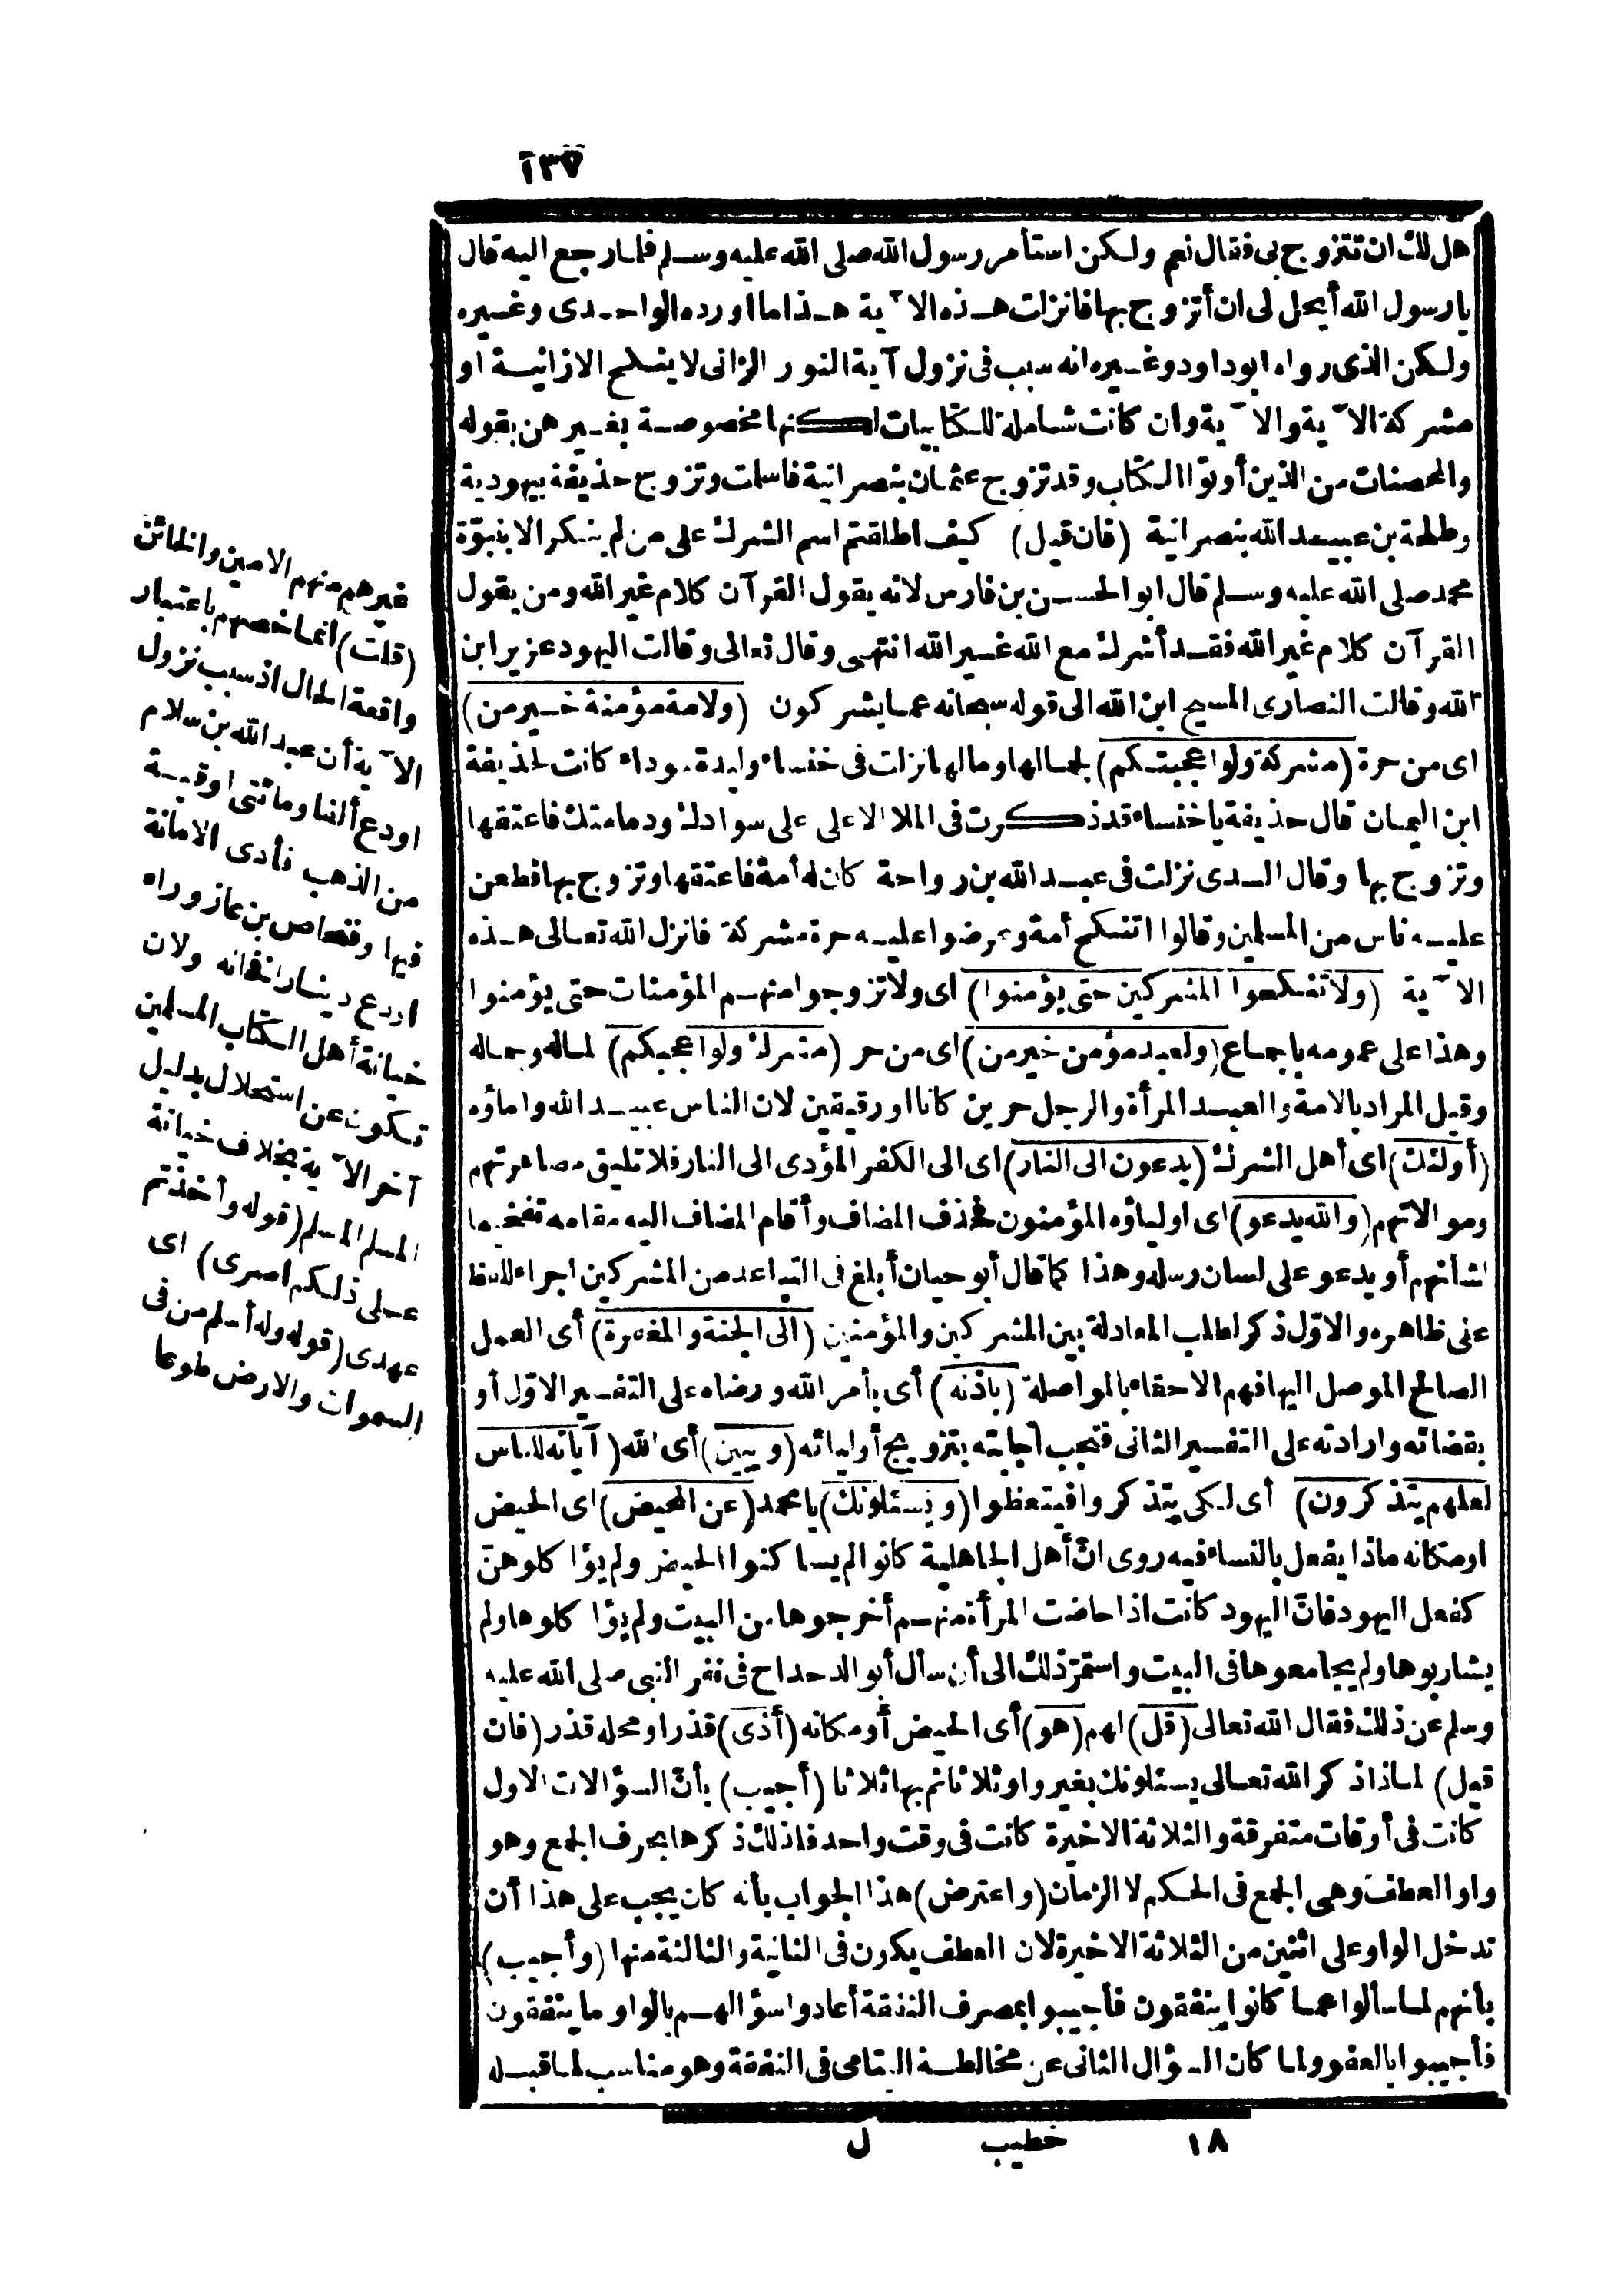 ١٣٧
هل لك ان تتزوج بى فقال نعم ولكن استأمر رسول الله صلى الله عليه وسلم فلما رجع اليه قال
يا رسول الله أيحل لى ان أتزوج بها فانزلت هذه الآية هذا ما اورده الواحدى وغيره
ولكن الذى رواه ابو داود وغيره انه سبب فى نزول آية النور الزانى لا ينكح الا زانية او
مشركة الآية والآية وان كانت شاملة للكتابيات لكنها مخصوصة بغيرهن بقوله
والمحصنات من الذين أوتوا الكتاب وقد تزوج عثمان بنصرانية فاسلمت وتزوج حذيفة بيهودية
وطلحة بن عبيد الله بنصرانية (فان قيل) كيف اطلقتم اسم الشرك على من لم ينكر الا بنبوّة
محمد صلى الله عليه وسلم قال ابو الحسن بن فارس لانه يقول القرآن كلام غير الله ومن يقول
القرآن كلام غير الله فقد أشرك مع الله غير الله انتهى وقال تعالى وقالت اليهود عزير ابن
الله وقالت النصارى المسيح ابن الله الى قوله سبحانه عما يشركون (ولامة مؤمنة خير من)
اى من حرة (مشركة ولو اعجبتكم) بجمالها ومالها نزلت فى خنساء وليدة سوداء كانت لحذيفة
ابن اليمان قال حذيفة يا خنساء قد ذكرت فى الملا الاعلى على سوادك ودمامتك فاعتقها
وتزوج بها وقال السدى نزلت فى عبد الله بن رواحة كان له أمة فاعتقها وتزوج بها فطعن
عليه ناس من المسلمين وقالوا اتنكح أمة وعرضوا عليه حرة مشركة فانزل الله تعالى هذه
الآية (ولا تنكحوا المشركين حتى يؤمنوا) اى ولا تزوجوا منهم المؤمنات حتى يؤمنوا
وهذا على عمومه باجماع (ولعبد مؤمن خير من) اى من حر (مشرك ولو اعجبكم) لماله وجماله
وقيل المراد بالامة والعبد المرأة والرجل حرين كانا او رقيقين لان الناس عبيد الله واماؤه
(أولئك) اى أهل الشرك (يدعون الى النار) اى الى الكفر المؤدى الى النار فلا تليق مصاهرتهم
وموالاتهم (والله يدعو) اى اولياؤه المؤمنون فحذف المضاف وأقام المضاف اليه مقامه تفخيما
لشأنهم أو يدعو على لسان رسله وهذا كما قال أبو حيان أبلغ فى التباعد من المشركين اجراء للفظ
على ظاهره والاوّل ذكر لطلب المعادلة بين المشركين والمؤمنين (الى الجنة والمغفرة) أى العمل
الصالح الموصل اليها فهم الاحقاء بالمواصلة (باذنه) أى بأمر الله ورضاه على التفسير الاوّل أو
بقضائه وارادته على التفسير الثانى فتجب اجابته بتزويج أوليائه (ويبين) أى الله (آياته للناس
لعلهم يتذكرون) أى لكى يتذكروا فيتعظوا (ويسئلونك) يا محمد (عن المحيض) اى الحيض
او مكانه ماذا يفعل بالنساء فيه روى انّ أهل الجاهلية كانوا لم يساكنوا الحيض ولم يؤاكلوهنّ
كفعل اليهود فانّ اليهود كانت اذا حاضت المرأة منهم أخرجوها من البيت ولم يؤاكلوها ولم
يشاربوها ولم يجامعوها فى البيت واستمرّ ذلك الى أن سأل أبو الدحداح فى نفر النبى صلى الله عليه
وسلم عن ذلك فقال الله تعالى (قل) لهم (هو) أى الحيض أو مكانه (أذى) قذر او محله قذر (فان
قيل) لماذا ذكر الله تعالى يسئلونك بغير واو ثلاثا ثم بها ثلاثا (أجيب) بأنّ السؤالات الاول
كانت فى أوقات متفرقة والثلاثة الاخيرة كانت فى وقت واحد فلذلك ذكرها بحرف الجمع وهو
واو العطف وهى الجمع فى الحكم لا الزمان (واعترض) هذا الجواب بأنه كان يجب على هذا أن
تدخل الواو على اثنين من الثلاثة الاخيرة لان العطف يكون فى الثانية والثالثة منها (وأجيب)
بأنهم لما سألوا عما كانوا ينفقون فأجيبوا بمصرف النفقة أعادوا سؤالهم بالواو ما ينفقون
فأجيبوا بالعفو ولما كان السؤال الثانى عن مخالطة اليتامى فى النفقة وهو مناسب لما قبله
١٨ خطيب ل
غيرهم منهم الامين والخائن
(قلت) انما خصهم باعتبار
واقعة الحال اذ سبب نزول
الآية أن عبد الله بن سلام
اودع ألفا ومائتى اوقية
من الذهب فأدى الامانة
فيها وفنحاص بن عازوراء
اودع دينارا فخانه ولان
خيانة أهل الكتاب المسلمين
تكون عن استحلال بدليل
آخر الآية بخلاف خيانة
المسلم المسلم (قوله وأخذتم
على ذلكم اصرى) اى
عهدى (قوله وله أسلم من فى
السموات والارض طوعا